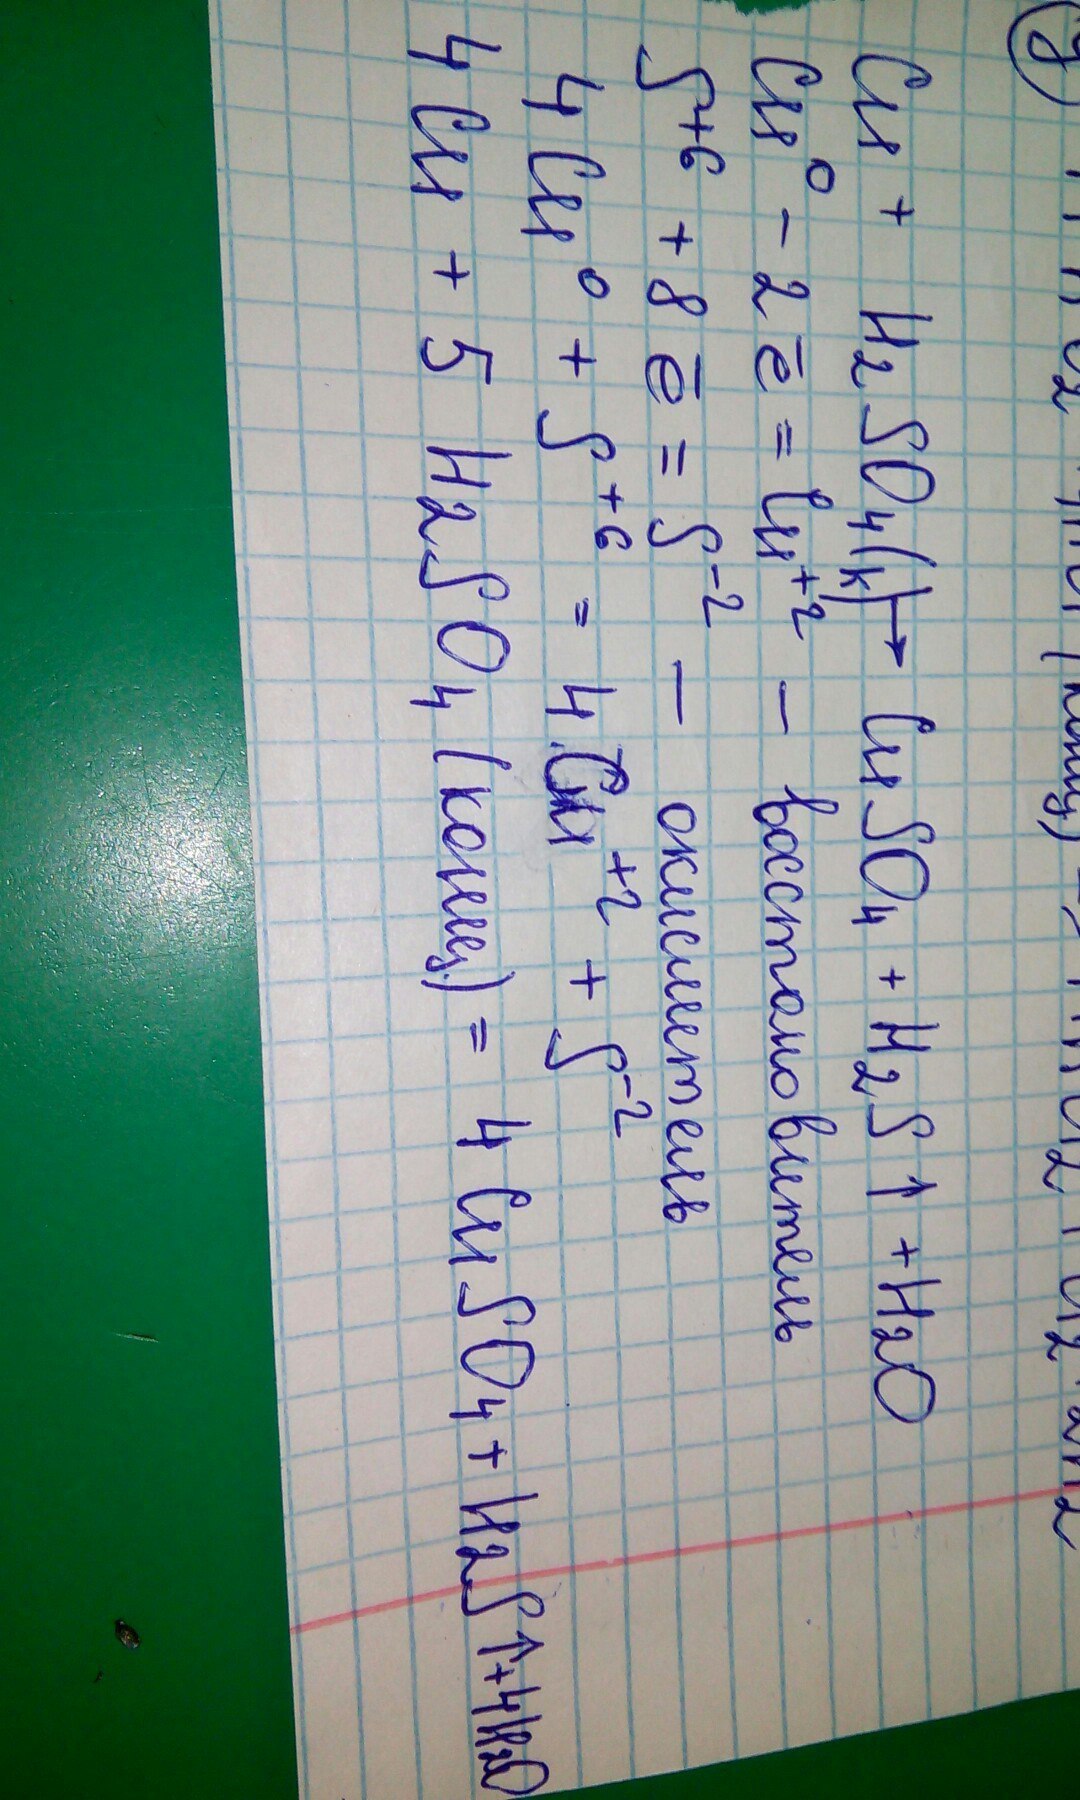 Cu + H2SO4(к) → CuSO4 + H2S↑ + H2O
Cu⁰ - 2ē = Cu⁺² - восстановитель
S⁺⁶ + 8ē = S⁻² - окислитель
4 Cu⁰ + S⁺⁶ = 4 Cu⁺² + S⁻²
4 Cu + 5 H2SO4 (конц.) = 4 CuSO4 + H2S↑ + 4H2O